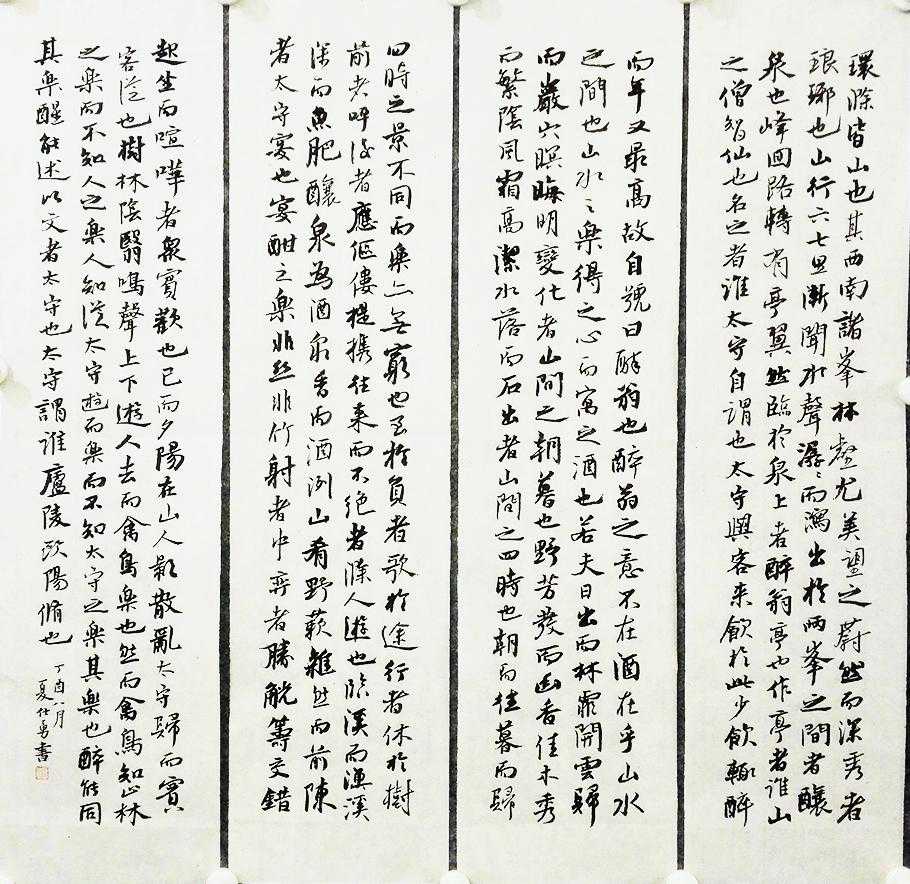 環滁皆山也其西南諸峯林壑尤美望之蔚然而深秀者
琅琊也山行六七里漸聞水聲潺〻而瀉出於兩峯之間者釀
泉也峰回路轉有亭翼然臨於泉上者醉翁亭也作亭者誰山
之僧智仙也名之者誰太守自謂也太守與客来飲於此少飲輒醉
而年又最高故自號曰醉翁也醉翁之意不在酒在乎山水
之間也山水〻樂得之心而寓之酒也若夫日出而林霏開雲歸
而巖穴暝晦明變化者山間之朝暮也野芳發而幽香佳木秀
而繁陰風霜高潔水落而石出者山間之四時也朝而往暮而歸
四時之景不同而樂亦無窮也至於負者歌於途行者休於樹
前者呼後者應傴僂提攜往来而不絕者滁人遊也臨溪而漁溪
深而魚肥釀泉為酒泉香而酒洌山肴野蔌雜然而前陳
者太守宴也宴酣之樂非絲非竹射者中弈者勝觥籌交錯
起坐而喧嘩者衆賓歡也已而夕陽在山人影散亂太守歸而賓
客從也樹林陰翳鳴聲上下遊人去而禽鳥樂也然而禽鳥知山林
之樂而不知人之樂人知從太守遊而樂而不知太守之樂其樂也醉能同
其樂醒能述以文者太守也太守謂誰廬陵歐陽脩也
丁酉八月
夏仕勇書